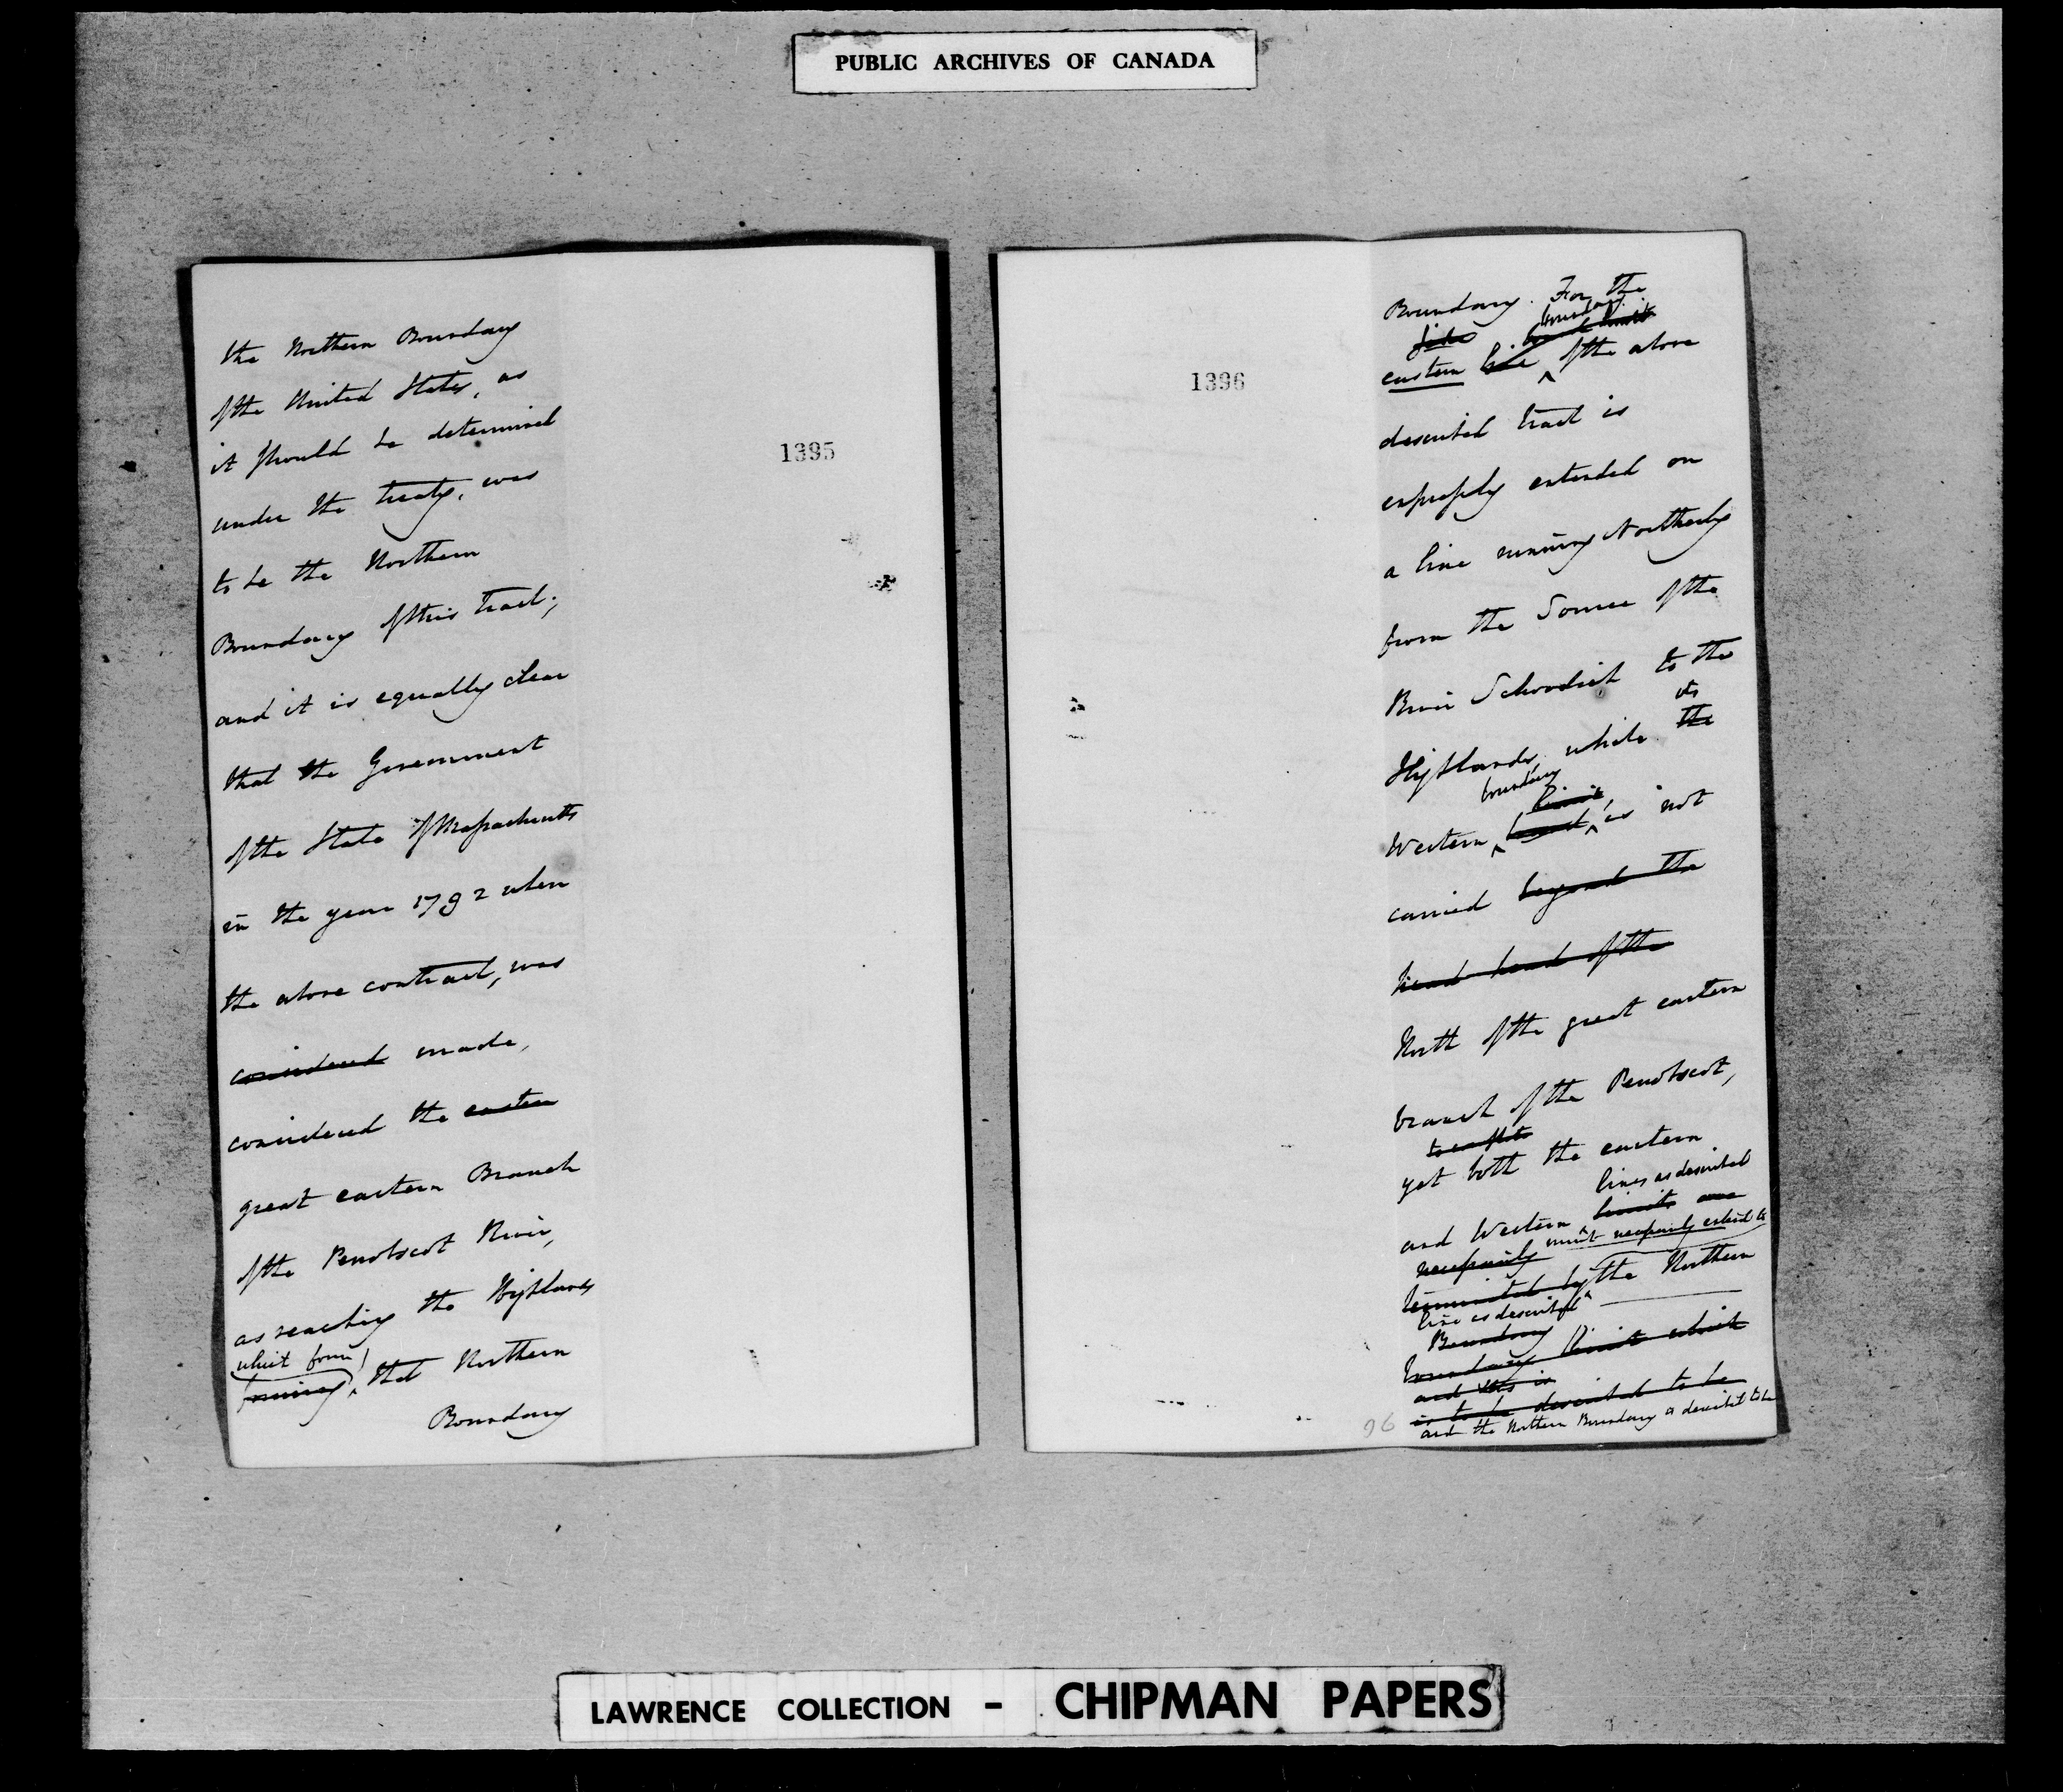 PUBLIC ARCHIVES OF CANADA
the Northern Boundary
of the United States, as
it should be determined
under the treaty, was
to be the Northern
Boundary of this tract;
and it is equally clear
that the Government
of the State of Massachusetts
in the year 1792 when
the above contract, was
considered made,
considered the eastern
great eastern Branch
of the Penobscot River,
as reaching the Highlands
which form
forming that Northern
Boundary
1395
1396
Boundary. For the
boundary
eastern line of the above
described tract is
expressly extended on
a line running Northerly
from the Source of the
River Schoodick to the
its
Highlands, while the
boundary
limit,
Western is not
carried beyond the
head head of the
North of the great eastern
branch of the Penobscot,
yet both the eastern
lines as described
and Western limits are
must necessarily extend to
necessarily
terminated by the Northern
line as described
Boundary
boundary limit which
and this is
is to be described to be
and the Northern Boundary is described to be
96
LAWRENCE COLLECTION - CHIPMAN PAPERS